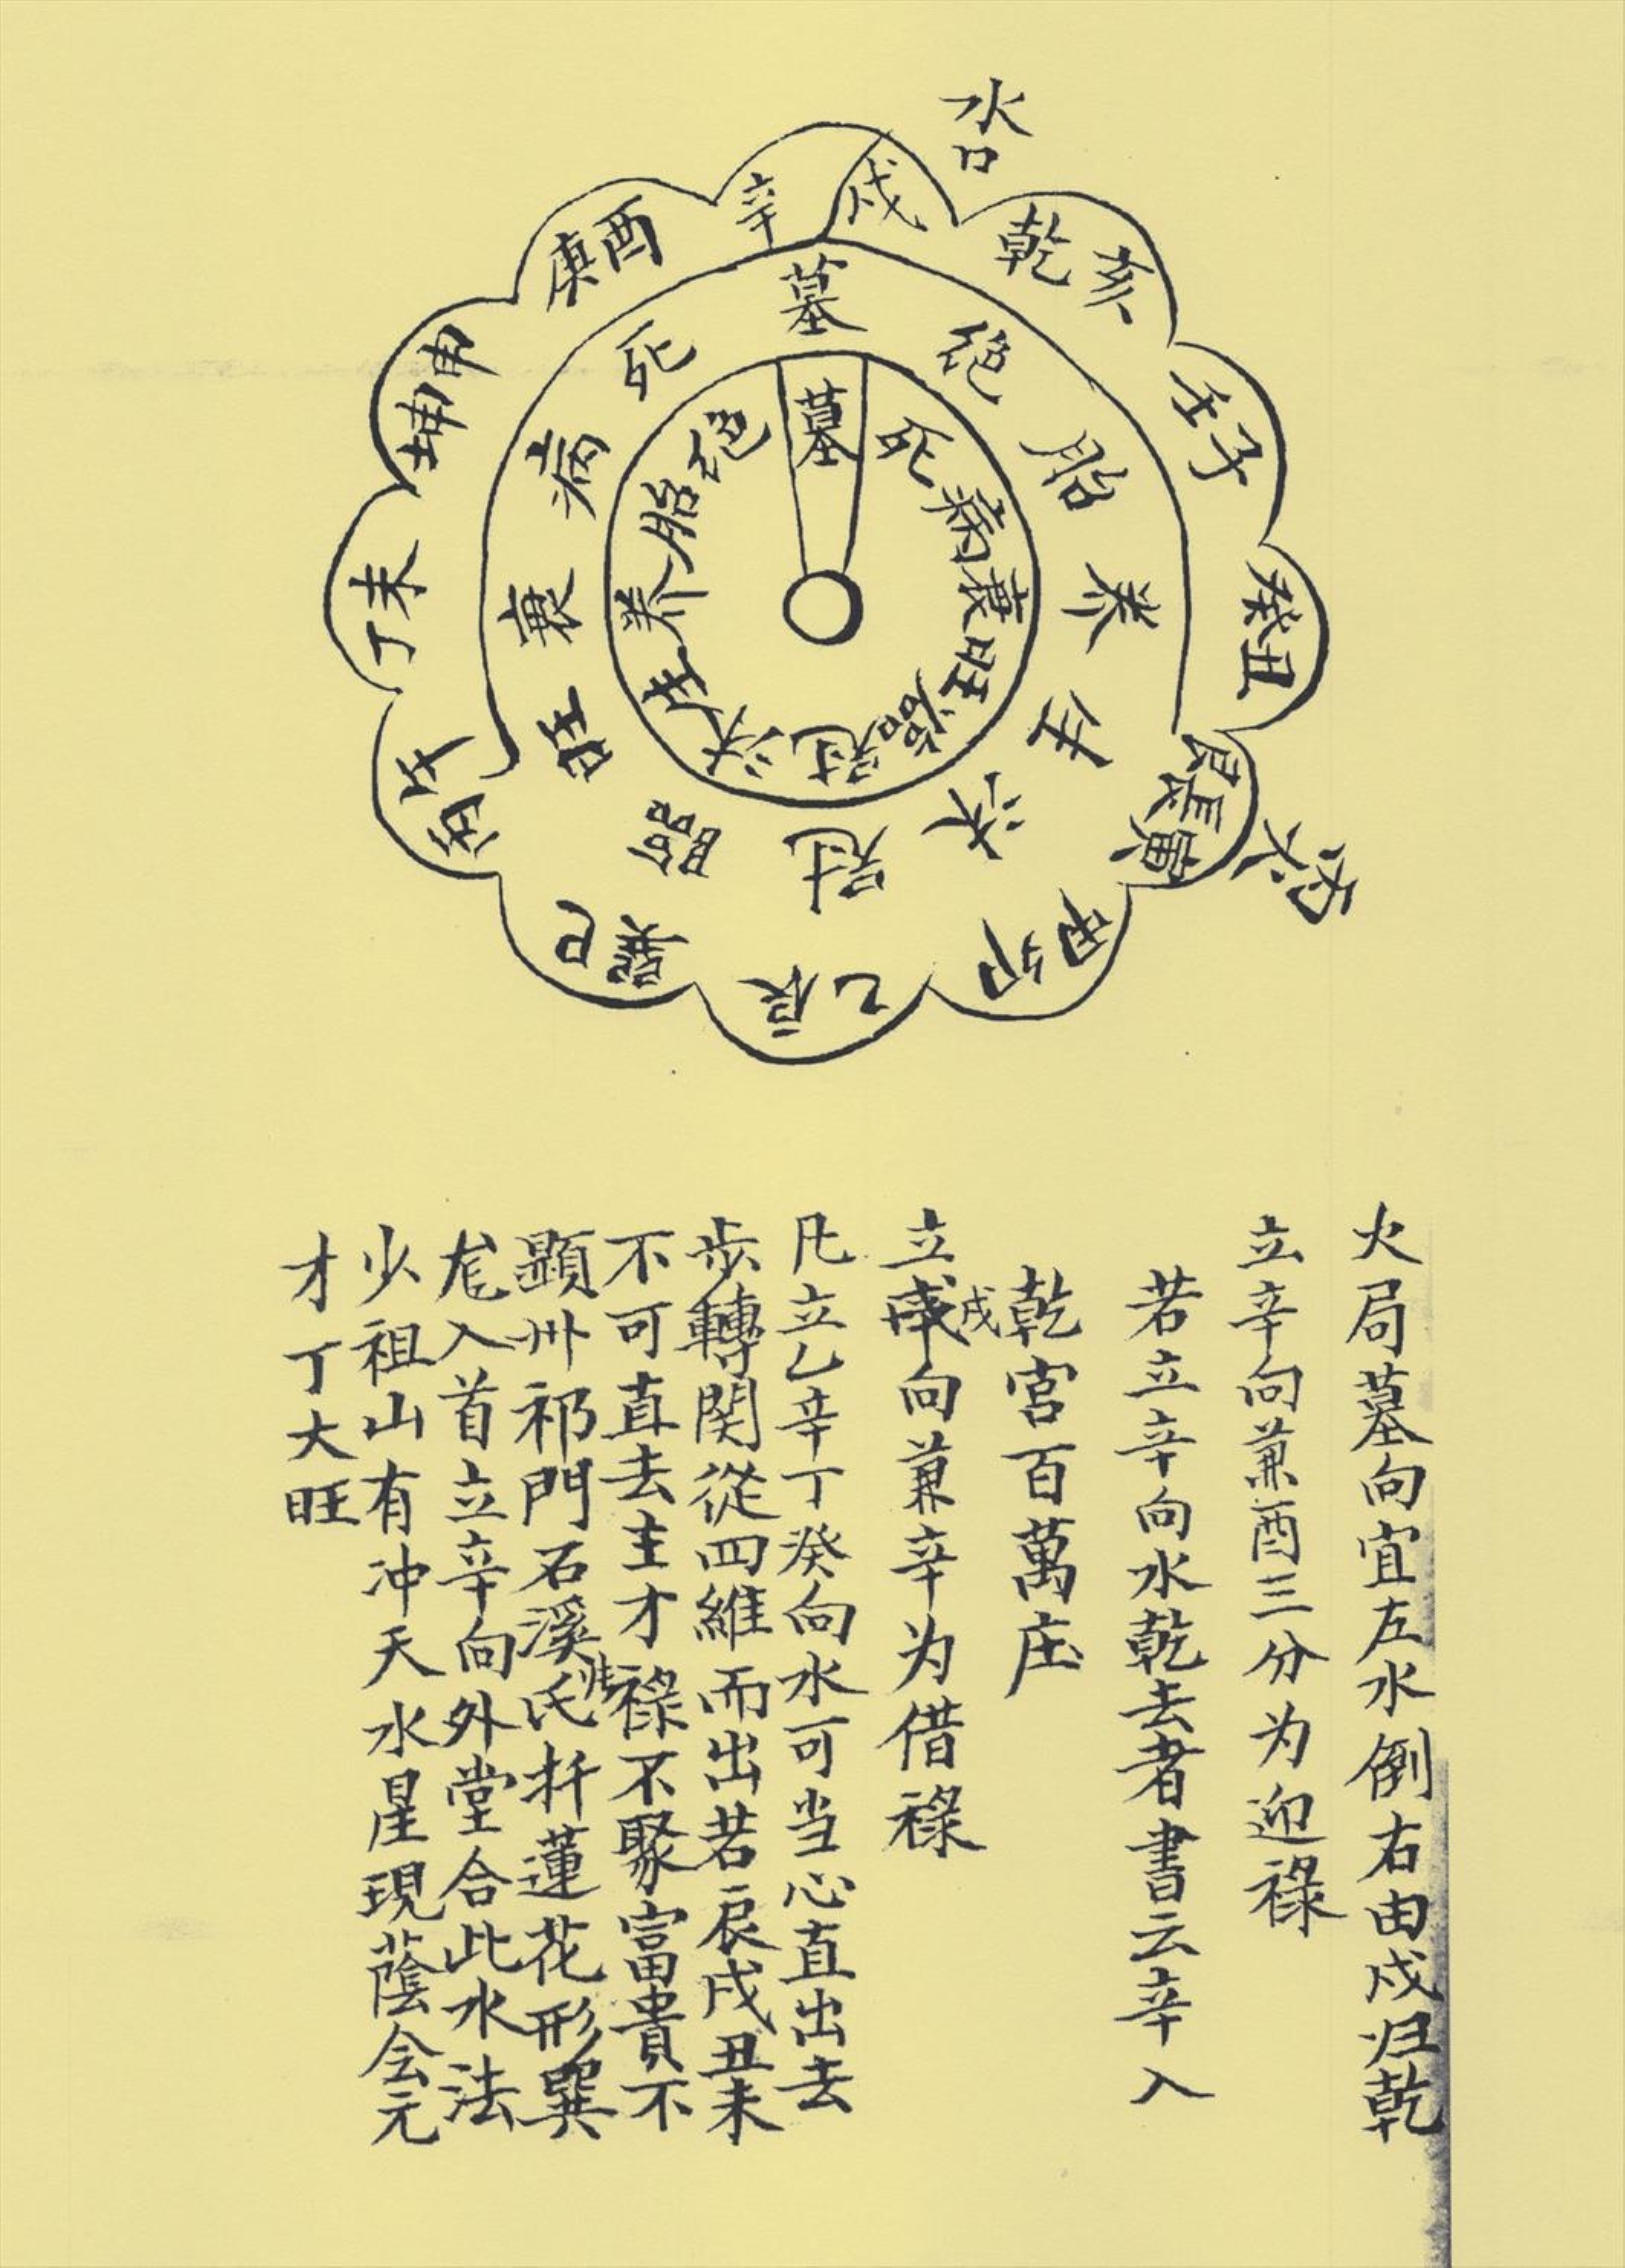 水口
辛戌
乾亥
壬子
癸丑
艮寅
甲卯
乙辰
巽巳
丙午
丁未
坤申
庚酉
墓
绝
胎
养
生
沐
冠
臨
旺
衰
病
死
墓
死
病
衰
旺
臨
冠
沐
生
养
胎
绝
火局墓向宜左水倒右由戌归乾
立辛向兼酉三分为迎祿
若立辛向水乾去者書云辛入
乾宮百萬庄
立戌向兼辛为借祿
凡立乙辛丁癸向水可当心直出去
步轉関從四維而出若辰戌丑未
不可直去主才祿不聚富貴不
顕州祁門石溪氏扦蓮花形巽
龙入首立辛向外堂合此水法
少祖山有冲天水星現蔭会元
才丁大旺